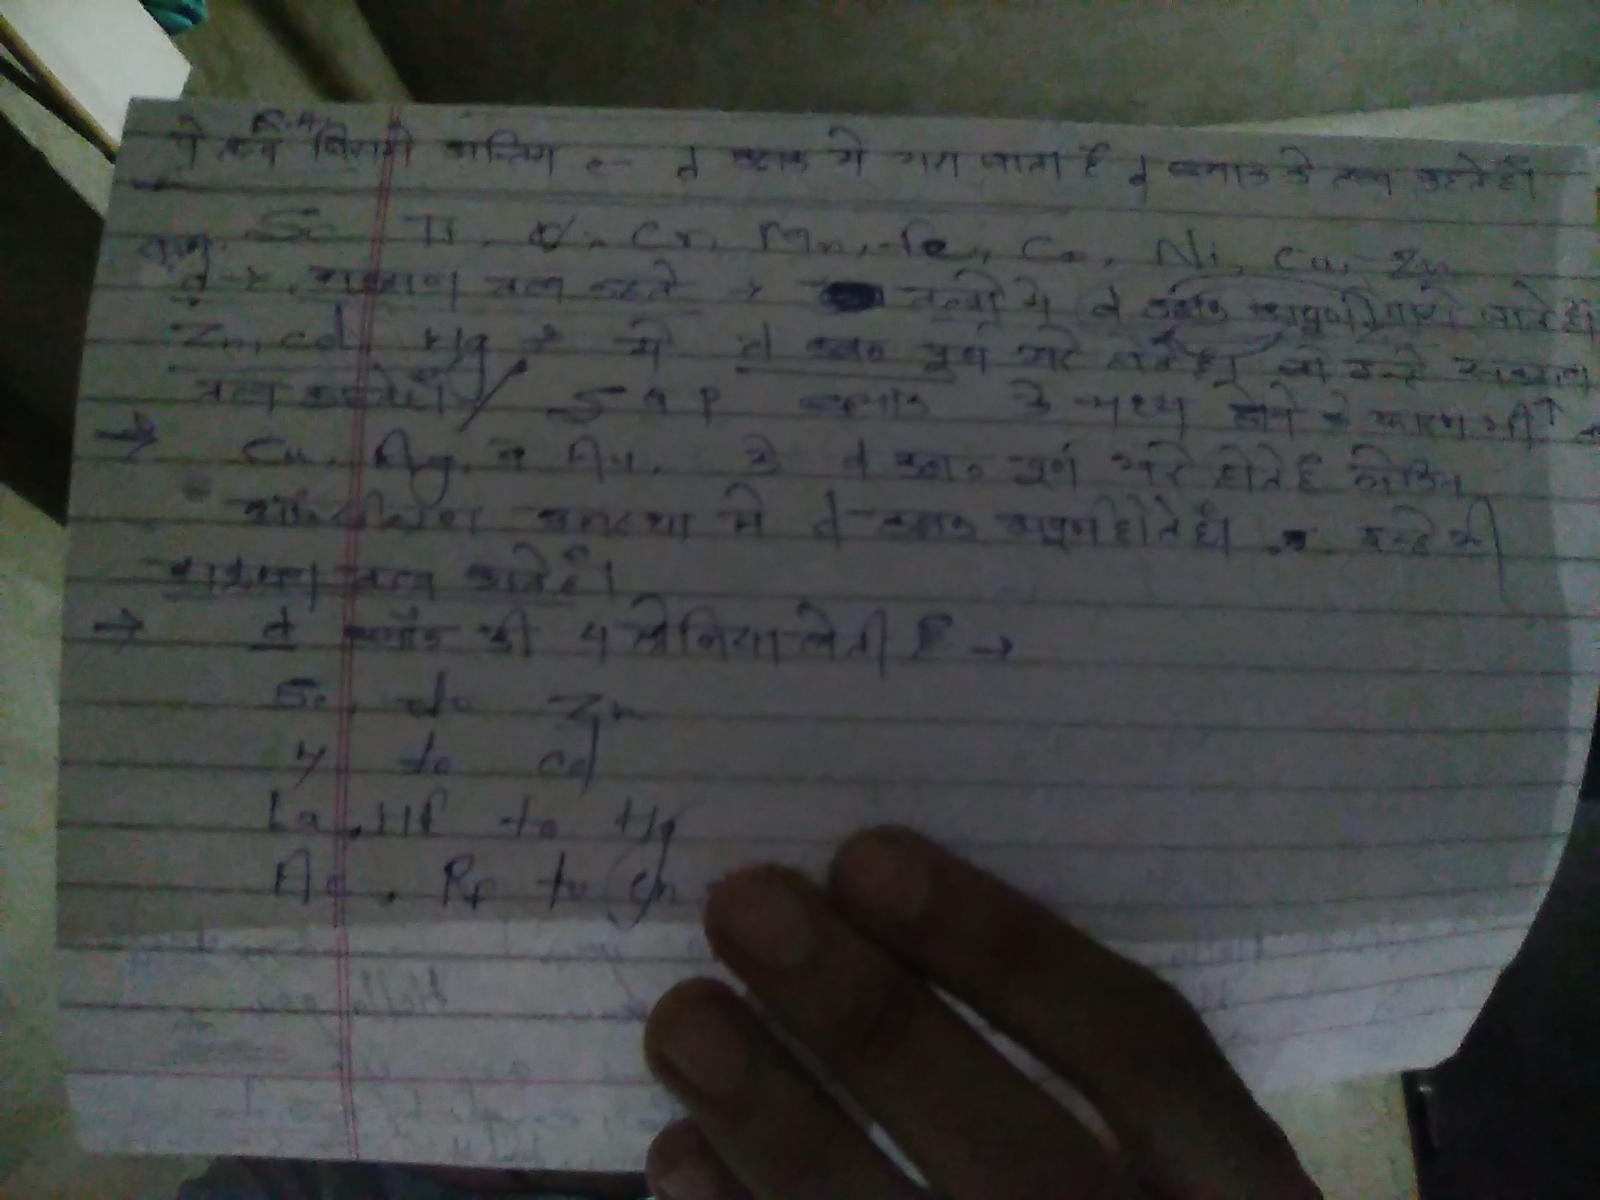 वे तत्व जिसमे अन्तिम e- d ब्लाक मे पाया जाता है d ब्लाक के तत्व कहते है।
Sc Ti, V, Cr, Mn, Fe, Co, Ni, Cu, Zn
d → संक्रमण तत्व कहते → तत्वो मे d ब्लाक अपूर्ण पाये जाते है।
Zn, cd, Hg → मे d ब्लाक पूर्ण भरे होते है।
तत्व कहते है। S व P ब्लाक के मध्य होने के कारण भी
→ Cu, Ag, व Au, के d ब्लाक पूर्ण भरे होते है लेकिन
अवस्था मे d-ब्लाक अपूर्ण होते है। इन्हे भी
संक्रमण तत्व कहते है।
→ d ब्लॉक की 4 श्रेणिया होती है →
Sc, to Zn
Y to Cd
La, Hf to Hg
Ac, Rf to Cn